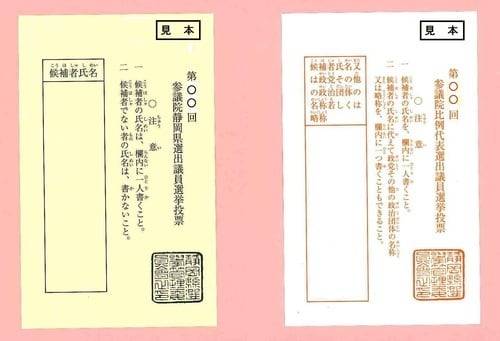 見本
第〇〇回
参議院静岡県選出議員選挙投票
〇注意
一 候補者の氏名は、欄内に一人書くこと。
二 候補者でない者の氏名は、書かないこと。
候補者氏名
見本
第〇〇回
参議院比例代表選出議員選挙投票
〇注意
一 候補者の氏名を、欄内に一人書くこと。
二 候補者の氏名に代えて政党その他の政治団体の名称
又は略称を、欄内に一つ書くこともできること。
候補者の氏名又は政党その他の政治団体の名称若しくは略称